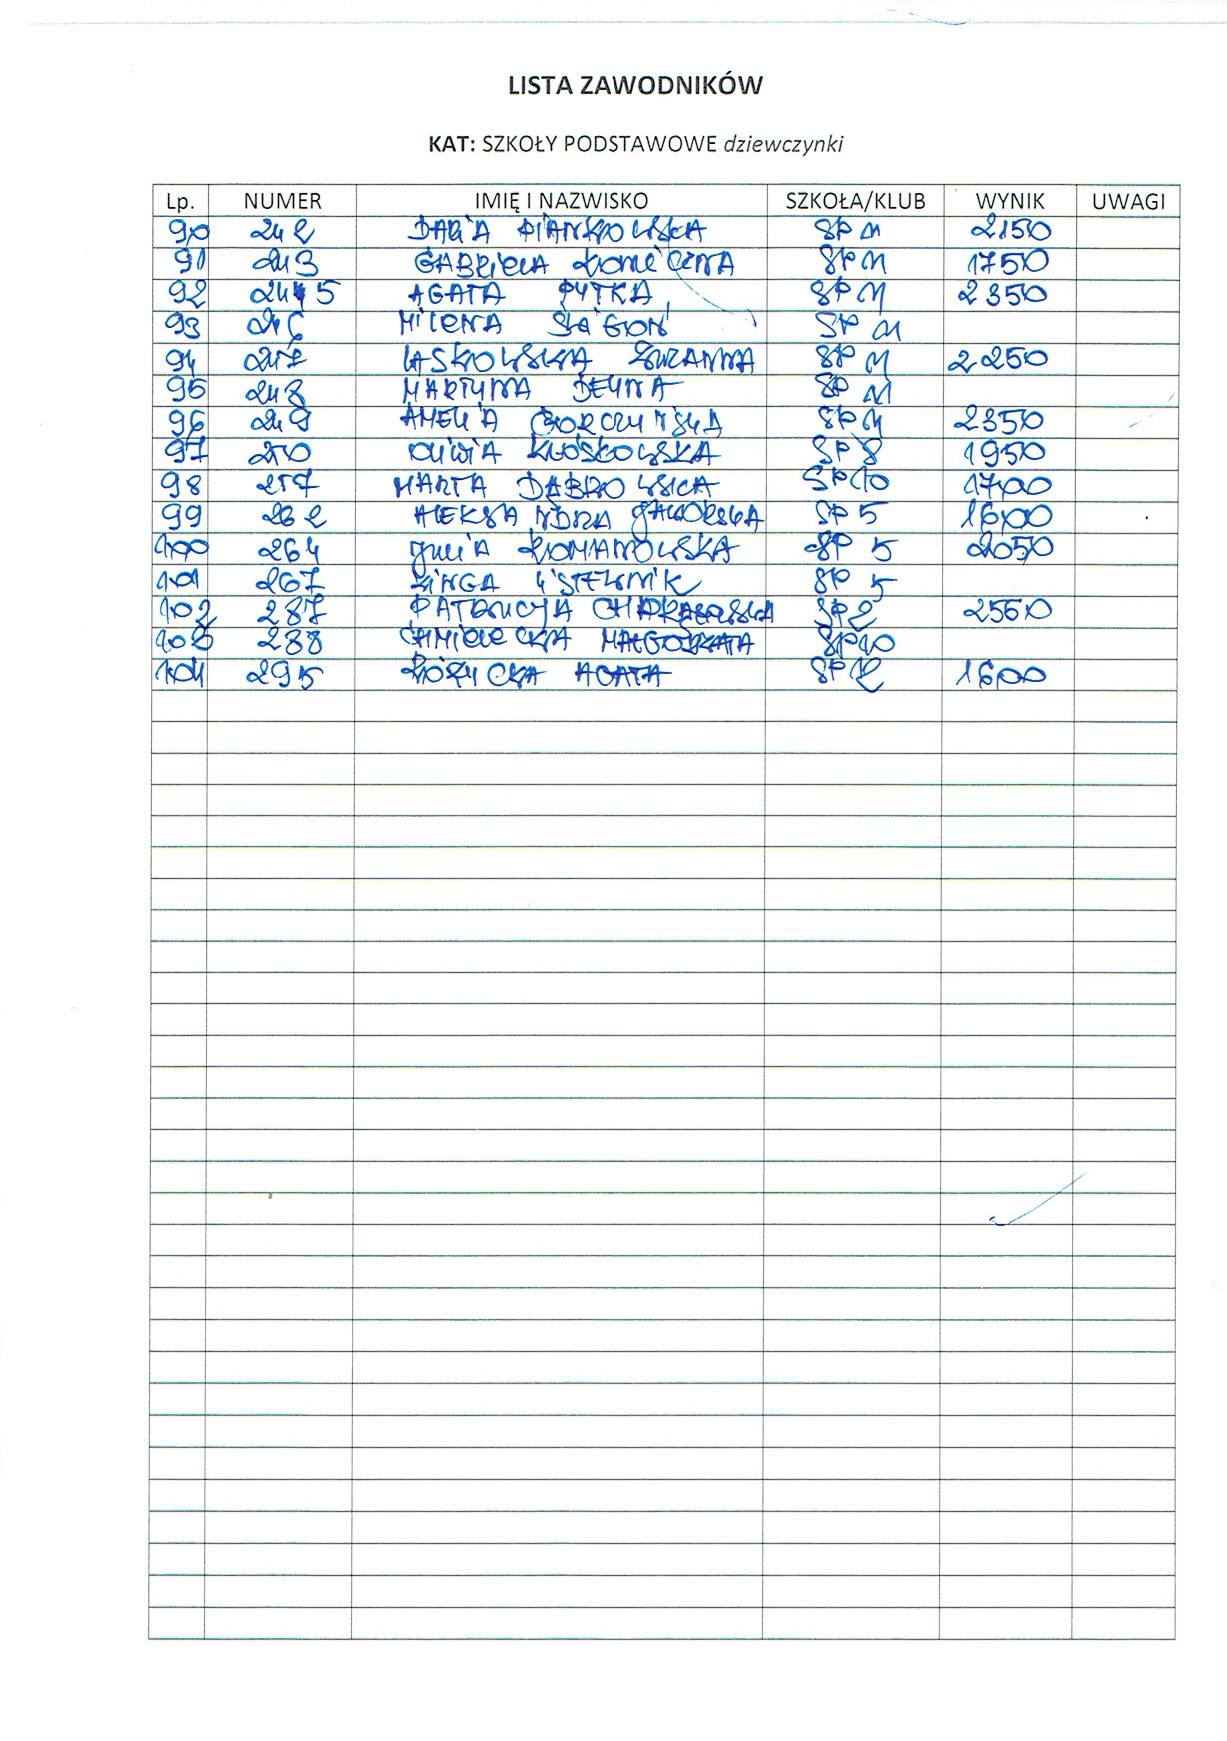 LISTA ZAWODNIKÓW
KAT: SZKOŁY PODSTAWOWE dziewczynki
Lp. NUMER IMIĘ I NAZWISKO SZKOŁA/KLUB WYNIK UWAGI
90 242 DARIA PIANKOWSKA SP 11 2150
91 243 GABRIELA KONIECZNA SP 11 1750
92 245 AGATA PYTKA SP 11 2350
93 246 MILENA SP 11
94 247 LASKOWSKA ZUZANNA SP 11 2250
95 248 MARTYNA DEYNA SP 11
96 249 AMELIA GORCZYŃSKA SP 11 2350
97 250 OLIWIA KŁOSKOWSKA SP 8 1950
98 257 MARTA DĄBROWSKA SP 10 1700
99 262 ALEKSANDRA JAWORSKA SP 5 1600
100 264 JULIA ROMANOWSKA SP 5 2050
101 267 KINGA SP 5
102 287 PATRYCJA SP 2 2550
103 288 CHMIELECKA MAŁGORZATA SP 10
104 295 RÓŻYCKA AGATA SP 12 1600